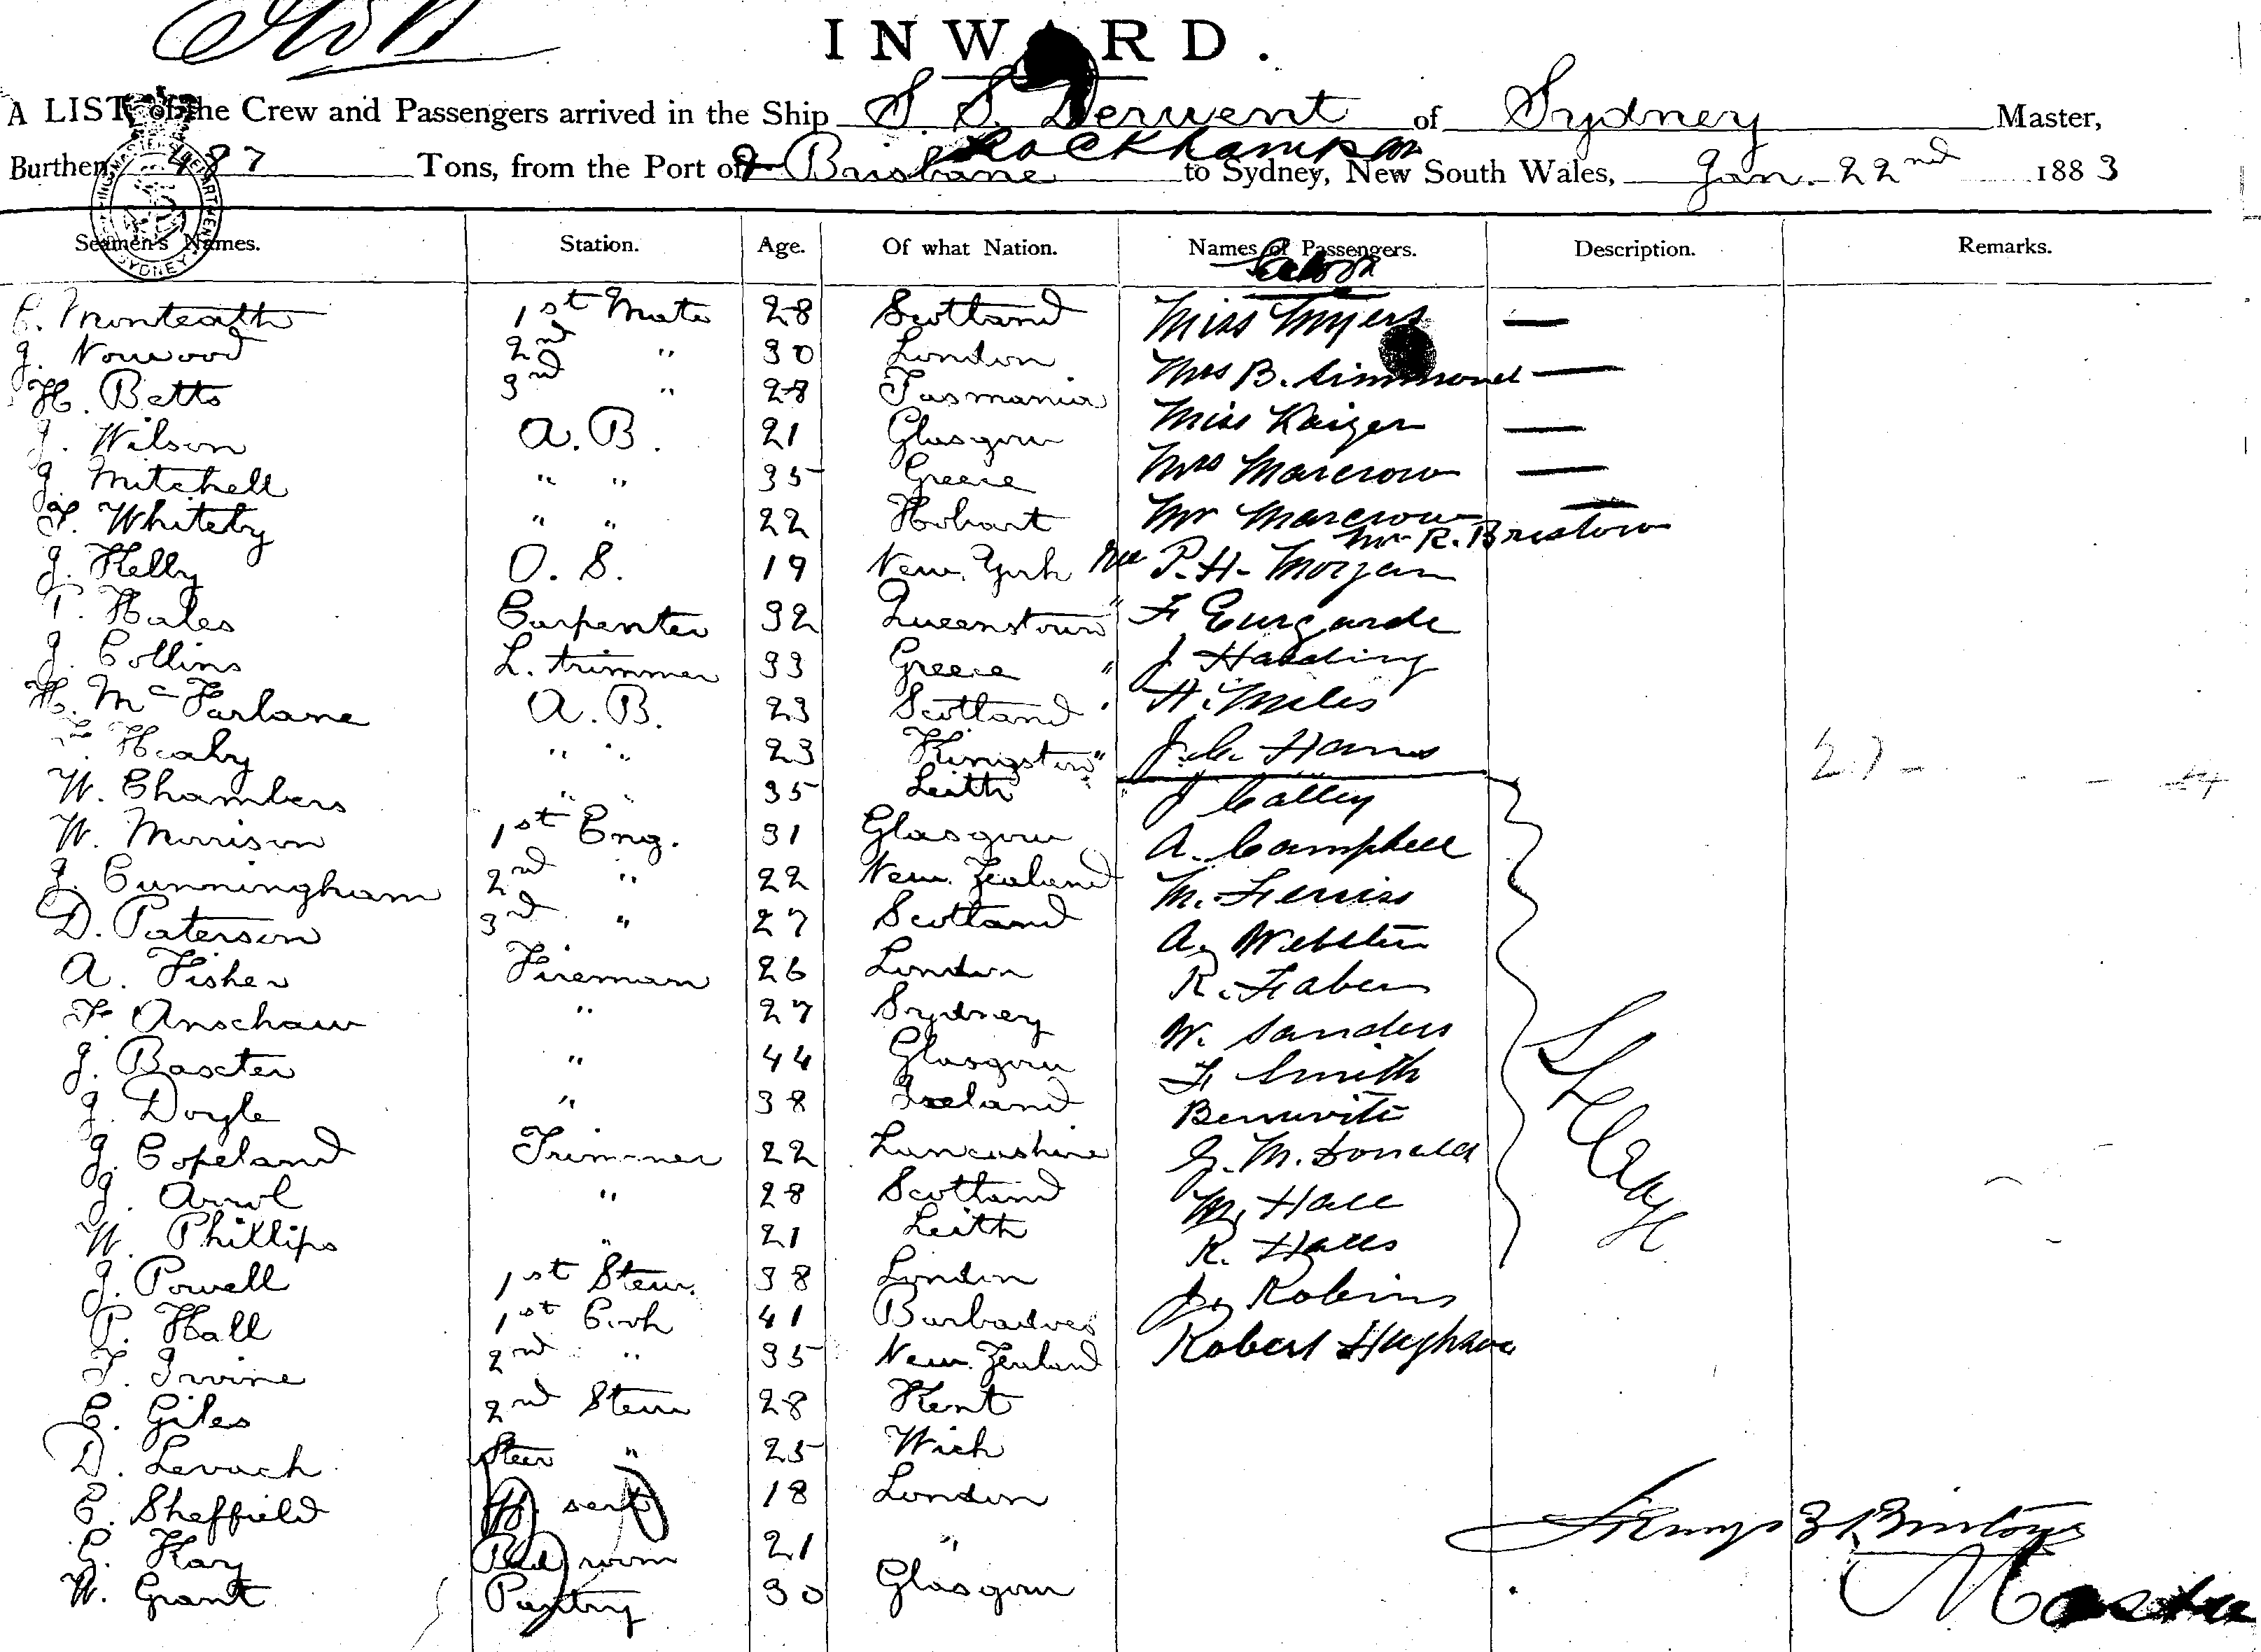 INWARD.
A LIST of the Crew and Passengers arrived in the Ship S. S. Derwent of Sydney Master,
Rockhampton
Burthen 487 Tons, from the Port of Brisbane to Sydney, New South Wales, Jan. 22nd 1883
Seamen's Names. Station. Age. Of what Nation. Names of Passengers. Description. Remarks.
Saloon
C. Monteath 1st Mate 28 Scotland Miss Myers —
J. Norwood 2nd " 30 London Mrs B. Simmond —
H. Betts 3rd " 28 Tasmania Miss Kaizer —
J. Wilson A.B. 21 Glasgow Mrs Marcrow —
J. Mitchell " " 35 Greece Mr Marcrow —
Mr R. Bristow
F. Whiteby " " 22 Hobart
J. Kelly O.S. 19 New York P. H. Morgan
T. Hales Carpenter 32 Queenstown " F
J. Collins L. trimmer 33 Greece " J Harding
H. McFarlane A.B. 23 Scotland " H. Miles
F. Healy " " 23 Kingstown " J. C.
W. Chambers " " 35 Leith J Calley
W. Morrison 1st Eng. 31 Glasgow A. Campbell
J. Cunningham 2nd " 22 New Zealand M. Ferriss
D. Paterson 3rd " 27 Scotland A. Webster
A. Fisher Fireman 26 London R. Faber
F. Anschaw " 27 Sydney W. Sanders
J. Baxter " 44 Glasgow F Smith
J. Doyle " 38 Ireland
J. Copeland Trimmer 22 Lancashire J. McDonald
J. Arrol " 28 Scotland M. Hall
W. Phillips " 21 Leith R.
J. Powell 1st Stew. 38 London J. Robins
P. Hall 1st Cook 41 Barbadoes Robert
F. Irvine 2nd " 35 New Zealand
C. Giles 2nd Stew 28 Kent
D. Levack Stew " 25 Wick
C. Sheffield 18 London
G. Kay Bed room 21 "
W. Grant Pantry 30 Glasgow
Steerage
Master